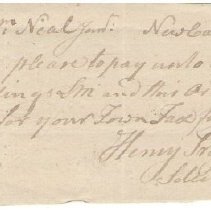 Neal Jun.r Newca
please to pay unto
ings LM and this
for your Town Tax for
Henry
Sele